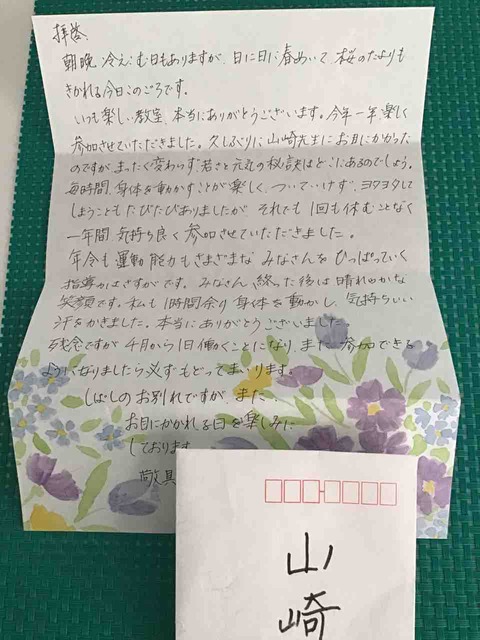 拝啓
朝晩 冷えこむ日もありますが、日に日に春めいて 桜のたよりも
きかれる今日このごろです。
いつも楽しい教室、本当にありがとうございます。今年一年楽しく
参加させていただきました。久しぶりに山崎先生にお目にかかった
のですが まったく変わらず 若さと元気の秘訣はどこにあるのでしょう。
毎時間 身体を動かすことが楽しく、ついていけず、ヨタヨタして
しまうこともたびたびありましたが それでも1回も休むことなく
一年間 気持ち良く 参加させていただきました。
年令も運動能力もさまざまな みなさんを ひっぱっていく
指導力はさすがです。みなさん 終った後は 晴れやかな
笑顔です。私も1時間余り 身体を動かし、気持ちいい
汗をかきました。本当にありがとうございました
残念ですが 4月から1日働くことになり、また 参加できる
ようになりましたら必ずもどってまいります。
しばしのお別れですが、また、
お目にかかれる日を楽しみに
しております
敬具
山崎